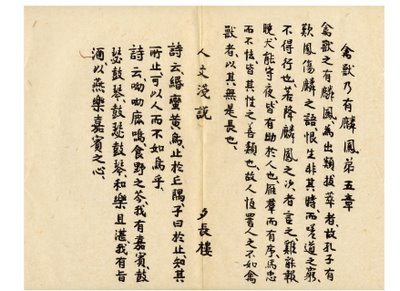 禽獸乃有麟鳳第五章
禽獸之有麟鳳，為出類拔萃者，故孔子有
歎鳳傷麟之語，恨生非其時，而嗟道之窮，
不得行也。若降麟鳳之次者言之，雞能報
曉，犬能守夜，皆有助於人也。雁羣而有序，馬忠
而不怯，皆其性之善類也。故人恆詈人之不如禽
獸者，以其無是長也。
人文淺說
夕長樓
詩云：緡蠻黃鳥，止於丘隅。子曰：於止，知其
所止，可以人而不如鳥乎。
詩云：呦呦鹿鳴，食野之芩，我有嘉賓，鼓
瑟鼓琴，鼓瑟鼓琴，和樂且湛，我有旨
酒，以燕樂嘉賓之心。